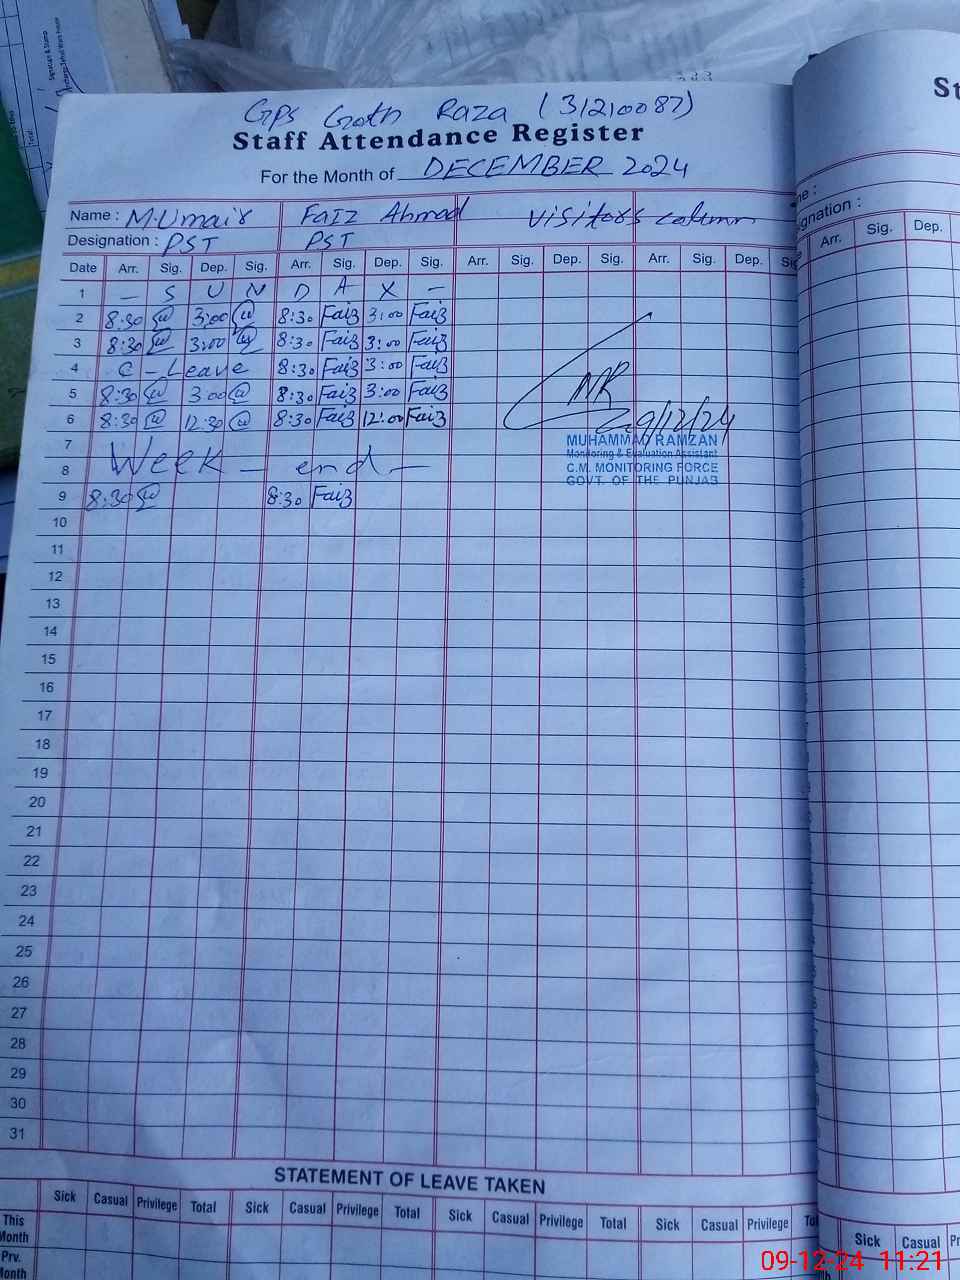 GPS Goth Raza (31210087)
Staff Attendance Register
For the Month of DECEMBER 2024
Name : M.Umair Faiz Ahmad Visitors column
Designation : PST PST
Date Arr. Sig. Dep. Sig. Arr. Sig. Dep. Sig. Arr. Sig. Dep. Sig. Arr. Sig. Dep. Sig
1 — S U N D A Y —
2 8:30 3:00 8:30 Faiz 3:00 Faiz
3 8:30 3:00 8:30 Faiz 3:00 Faiz
4 C - Leave 8:30 Faiz 3:00 Faiz
5 8:30 3:00 8:30 Faiz 3:00 Faiz
6 8:30 12:30 8:30 Faiz 12:00 Faiz
7
8 Week - end -
9 8:30 8:30 Faiz
MR
9/12/24
MUHAMMAD RAMZAN
Monitoring & Evaluation Assistant
C.M. MONITORING FORCE
GOVT. OF THE PUNJAB
10
11
12
13
14
15
16
17
18
19
20
21
22
23
24
25
26
27
28
29
30
31
STATEMENT OF LEAVE TAKEN
Sick Casual Privilege Total Sick Casual Privilege Total Sick Casual Privilege Total Sick Casual Privilege
This Month
Prv. Month
St
me :
gnation :
Arr. Sig. Dep.
Sick Casual Pr
Signature & Stamp
Total
09-12-24 11:21